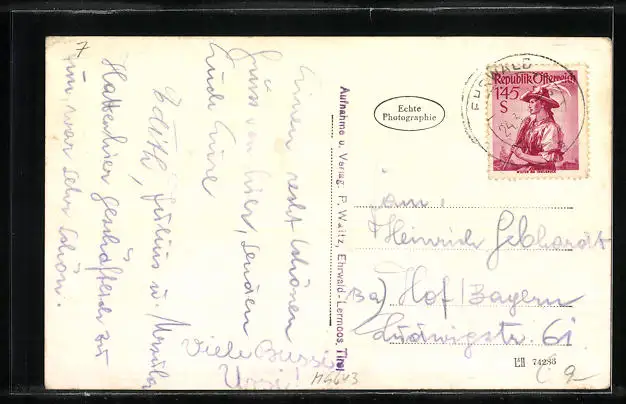 7
Einen recht schönen
Gruss von hier, senden
Euch Eure
Edith, Julius u. Ursula
Hatten hier geschäftlich zu
tun, war sehr schön.
Viele Bussi
Ursi!
Aufnahme u. Verlag P. Waitz, Ehrwald-Lermoos, Tirol
Echte
Photographie
Republik Österreich
145
S
Heinrich Gebhardt
Hof/Bayern
Ludwigstr. 61
74285